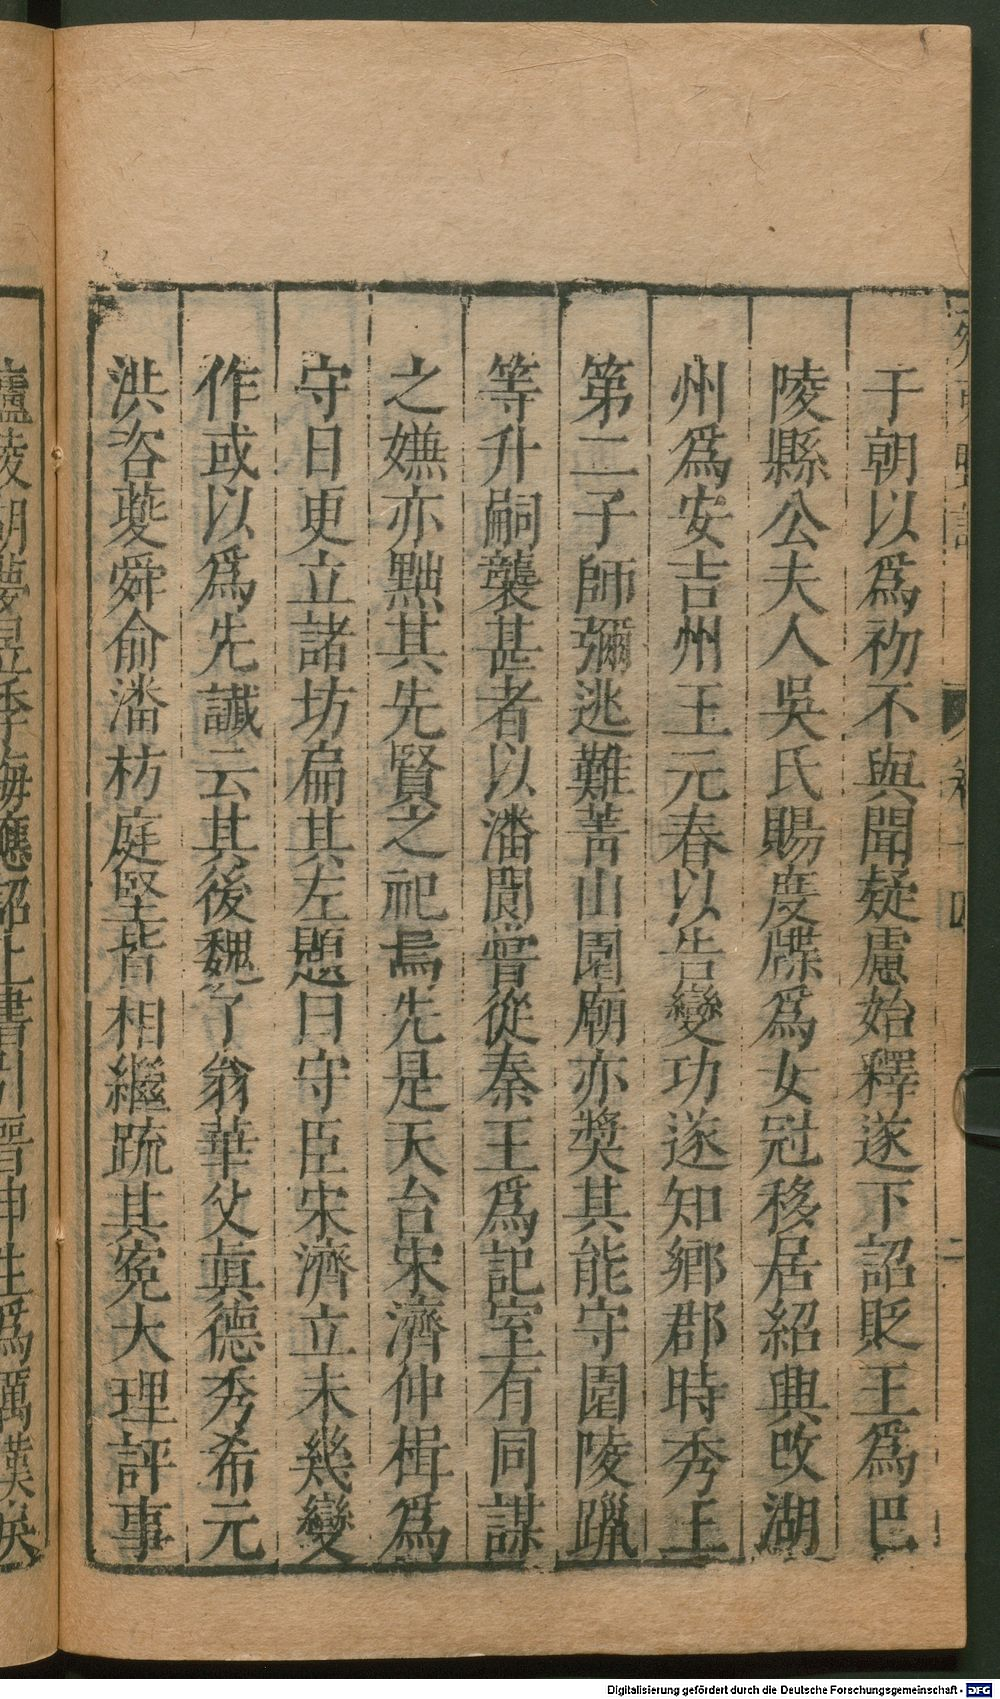 于朝以爲初不與聞疑慮始釋遂下詔貶王爲巴
陵縣公夫人吳氏賜度牒爲女冠移居紹興改湖
州爲安吉州王元春以告變功遂知鄉郡時秀王
第二子師彌逃難菁山園廟亦奬其能守園陵躐
等升嗣襲甚者以潘閬嘗從秦王爲記室有同謀
之嫌亦黜其先賢之祀焉先是天台宋濟仲楫爲
守日更立諸坊扁其左題曰守臣宋濟立未幾變
作或以爲先讖云其後魏了翁華父眞德秀希元
洪咨夔舜俞潘枋庭堅皆相繼疏其寃大理評事
廬陵胡夢昱季海應詔上書引晋申生爲厲漢戾
Digitalisierung gefördert durch die Deutsche Forschungsgemeinschaft - DFG